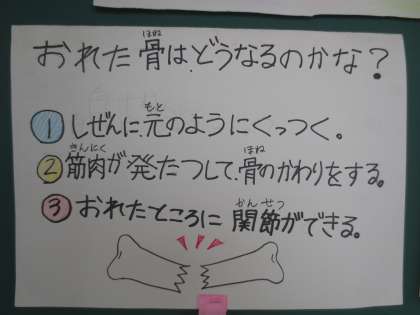 おれた骨は、どうなるのかな？
① しぜんに元のようにくっつく。
② 筋肉が発たつして、骨のかわりをする。
③ おれたところに関節ができる。